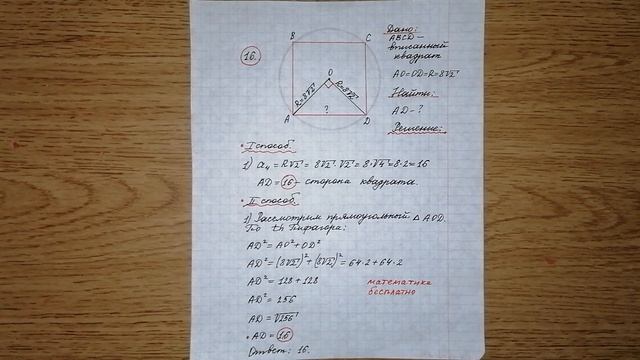 16.
B C
O
R=8√2 R=8√2
A ? D
Дано:
ABCD –
вписанный
квадрат
AO=OD=R=8√2
Найти:
AD – ?
Решение:
• I способ.
1) a₄ = R√2 = 8√2·√2 = 8·√4 = 8·2 = 16
AD = 16 – сторона квадрата.
• II способ.
1) Рассмотрим прямоугольный △ AOD.
По th Пифагора:
AD² = AO² + OD²
AD² = (8√2)² + (8√2)² = 64·2 + 64·2
AD² = 128 + 128
AD² = 256
AD = √256
• AD = 16
Ответ: 16.
математика
бесплатно